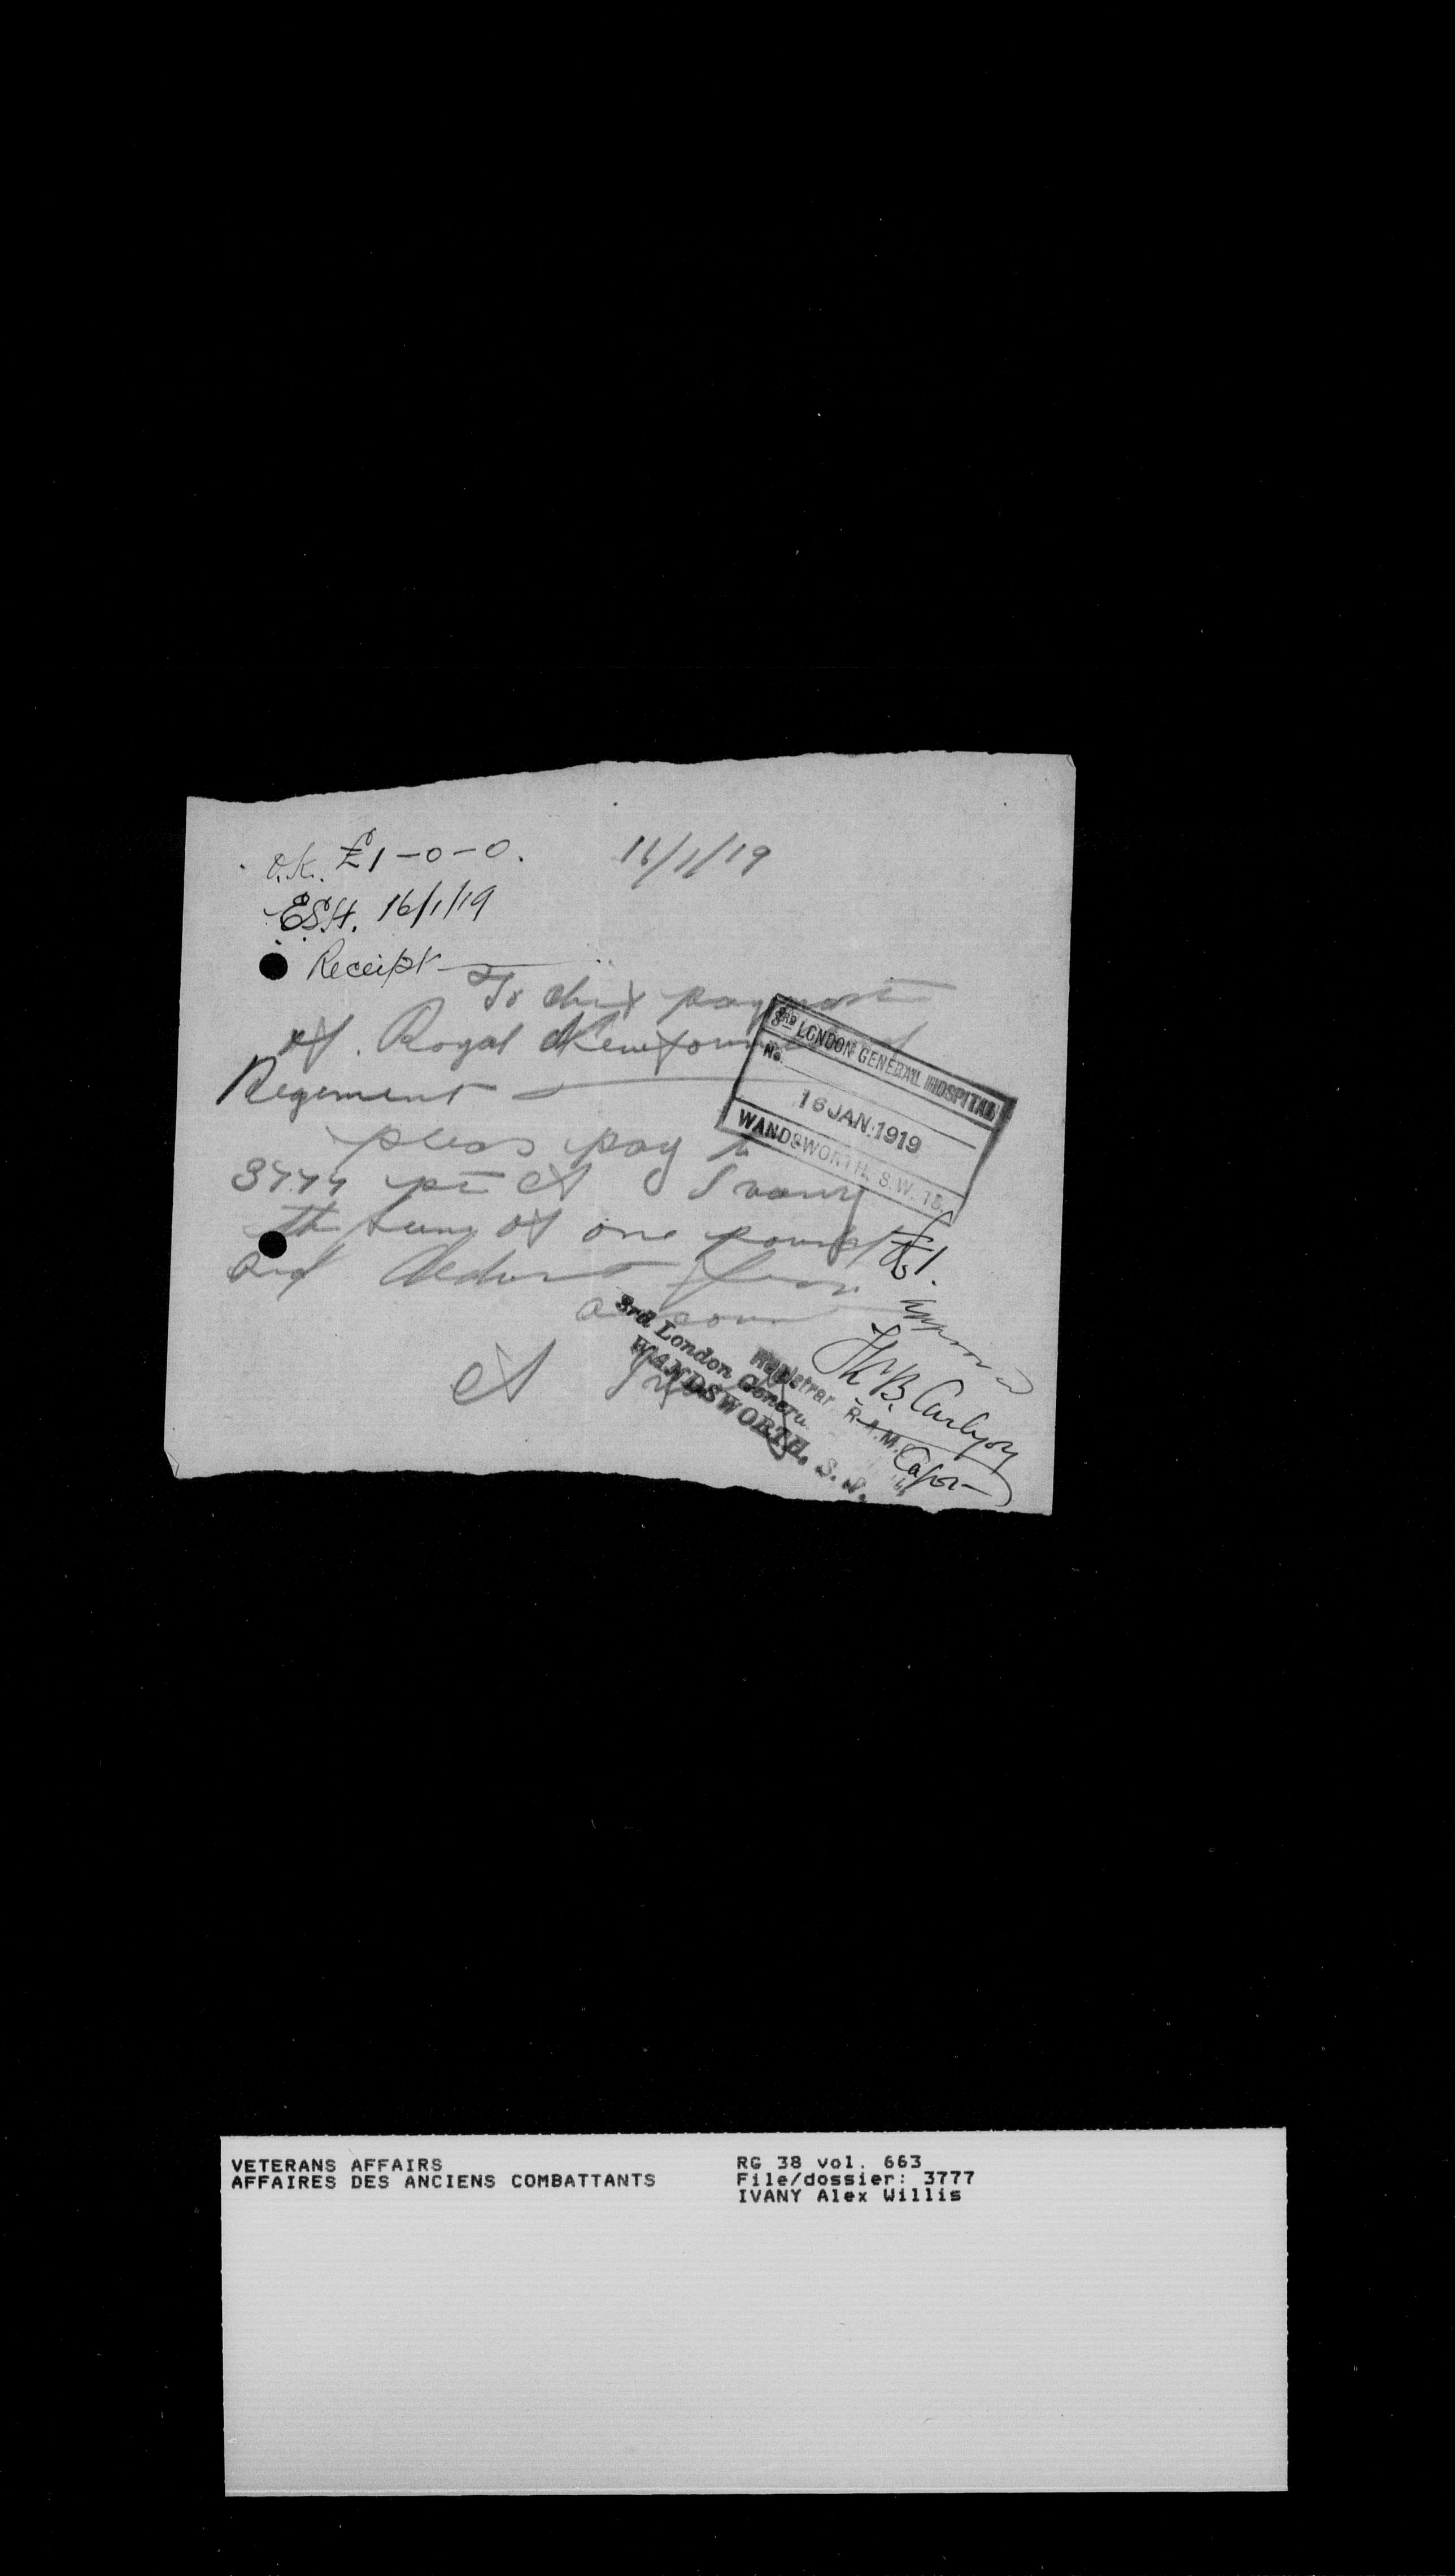 O.K. £1-0-0.
16/1/19
E.S.H. 16/1/19
Receipt
To chief paymast
of. Royal Newfoundland
Regiment
3RD LONDON GENERAL HOSPITAL
No.
16 JAN. 1919
WANDSWORTH, S.W. 18.
pleas pay to
3777 pte A Ivany
the sum of one pound
and deduct from
account
£1.
Approved
Carlyon
Capt
3rd London Genera
WANDSWORTH, S.W.
Registrar R.A.M.C.
A Ivany
VETERANS AFFAIRS
AFFAIRES DES ANCIENS COMBATTANTS
RG 38 vol. 663
File/dossier: 3777
IVANY Alex Willis